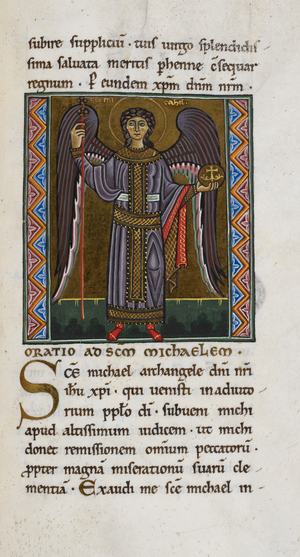 subire suppliciū · tuis uirgo splendidis
sima saluata meritis phenne c̄sequar
regnum · P eundem xp̄m dn̄m nr̄m ·
MI CAHEL
ORATIO AD SC̄M MICHAELEM ·
SCē michael archangele dn̄i nr̄i
ih̄u xp̄i · qui uenisti in adiuto
rium pp̄lo dī · subueni michi
apud altissimum iudicem · ut michi
donet remissionem om̄ium peccatorū ·
ꝓpter magnā miserationū suarū cle
mentiā · Exaudi me sc̄e michael in